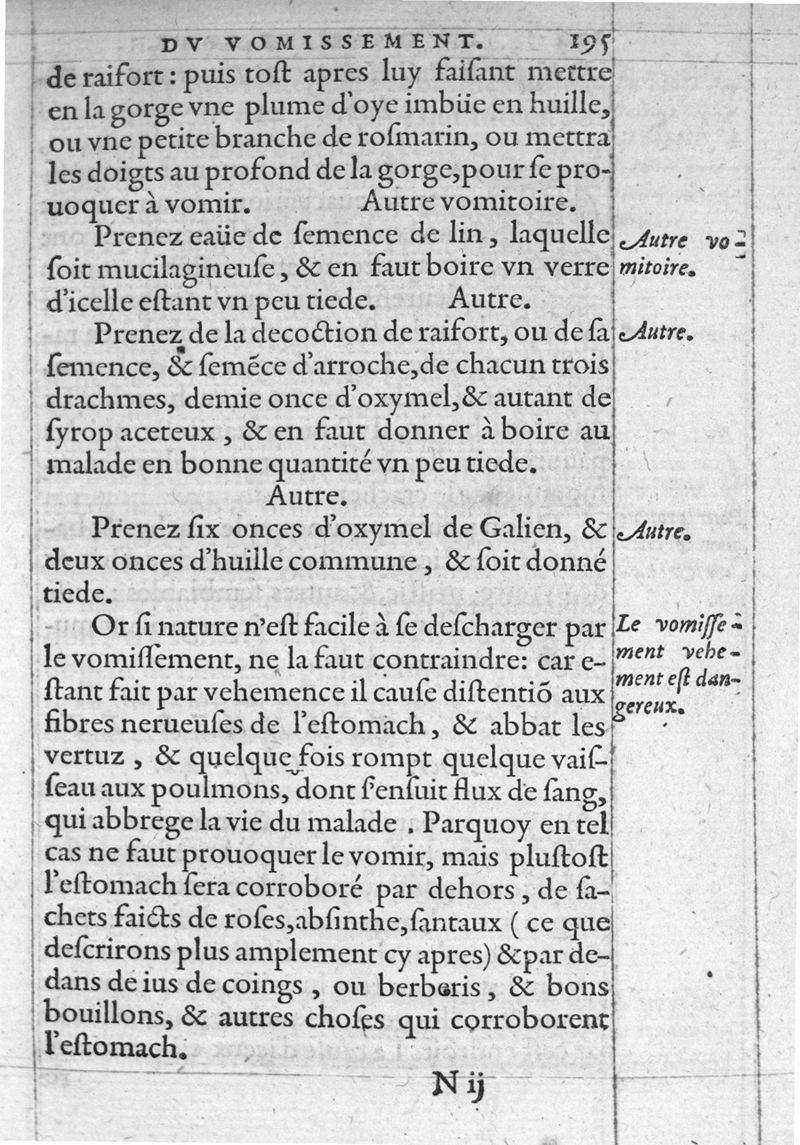 DV VOMISSEMENT. 195
de raifort : puis toſt apres luy faiſant mettre
en la gorge vne plume d'oye imbüe en huille,
ou vne petite branche de roſmarin, ou mettra
les doigts au profond de la gorge, pour ſe pro-
uoquer à vomir. Autre vomitoire.
Prenez eaüe de ſemence de lin, laquelle
ſoit mucilagineuſe, & en faut boire vn verre
d'icelle eſtant vn peu tiede. Autre.
Autre vo-
mitoire.
Prenez de la decoction de raifort, ou de ſa
ſemence, & ſemẽce d'arroche, de chacun trois
drachmes, demie once d'oxymel, & autant de
ſyrop aceteux, & en faut donner à boire au
malade en bonne quantité vn peu tiede.
Autre.
Autre.
Prenez ſix onces d'oxymel de Galien, &
deux onces d'huille commune, & ſoit donné
tiede.
Autre.
Or ſi nature n'eſt facile à ſe deſcharger par
le vomiſſement, ne la faut contraindre: car e-
ſtant fait par vehemence il cauſe diſtentiõ aux
fibres nerueuſes de l'eſtomach, & abbat les
vertuz, & quelque fois rompt quelque vaiſ-
ſeau aux poulmons, dont ſ'enſuit flux de ſang,
qui abbrege la vie du malade. Parquoy en tel
cas ne faut prouoquer le vomir, mais pluſtoſt
l'eſtomach ſera corroboré par dehors, de ſa-
chets faicts de roſes, abſinthe, ſantaux (ce que
deſcrirons plus amplement cy apres) & par de-
dans de ius de coings, ou berberis, & bons
bouillons, & autres choſes qui corroborent
l'eſtomach.
Le vomiſſe-
ment vehe-
ment eſt dan-
gereux.
N ij